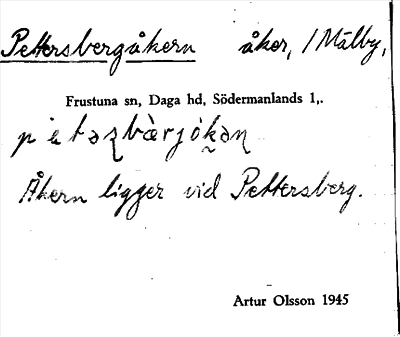 Pettersbergåkern åker, /Mälby,
Frustuna sn, Daga hd, Södermanlands l,.
Åkern ligger vid Pettersberg.
Artur Olsson 1945